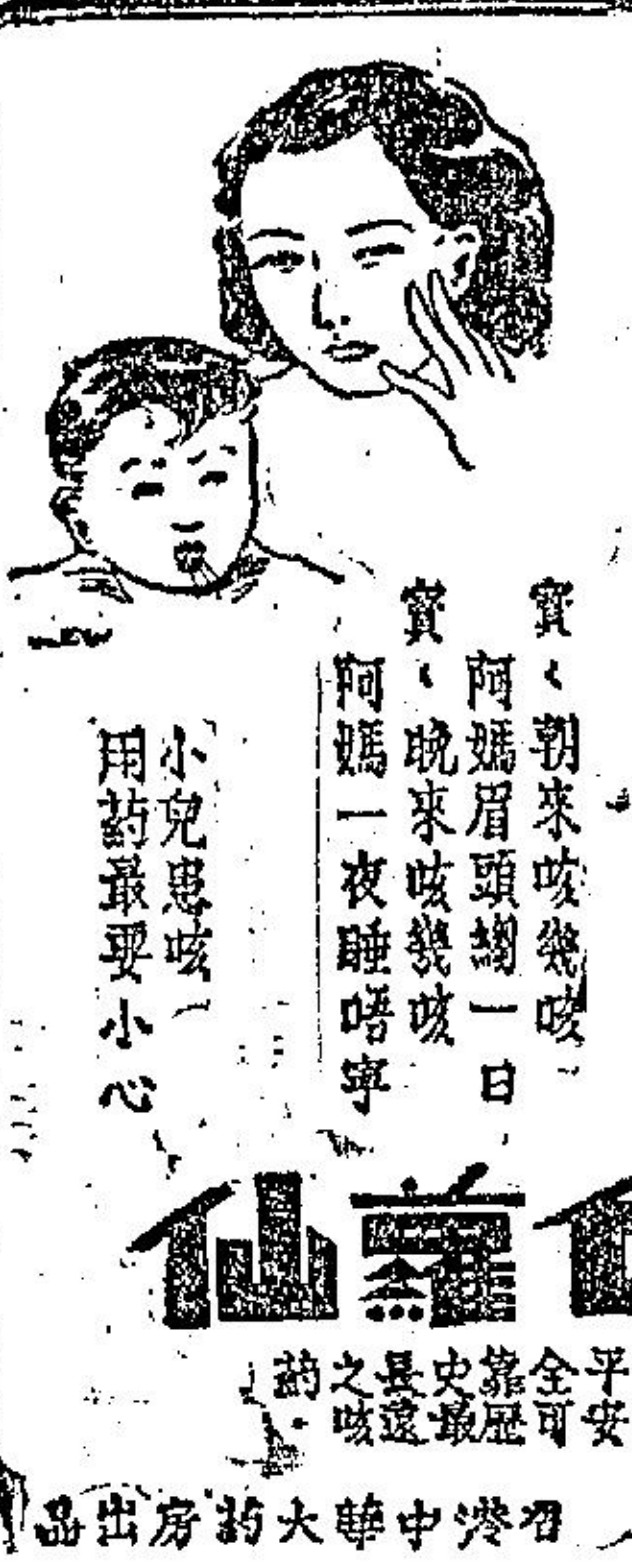 寳々朝來咳幾咳、
阿媽眉頭縐一日
寳々晚來咳幾咳
阿媽一夜睡唔寧
小兒患咳、
用药最要小心
仙
平安
全可
靠歷
史最
長遠
之咳
药．
香港中華大药房出品